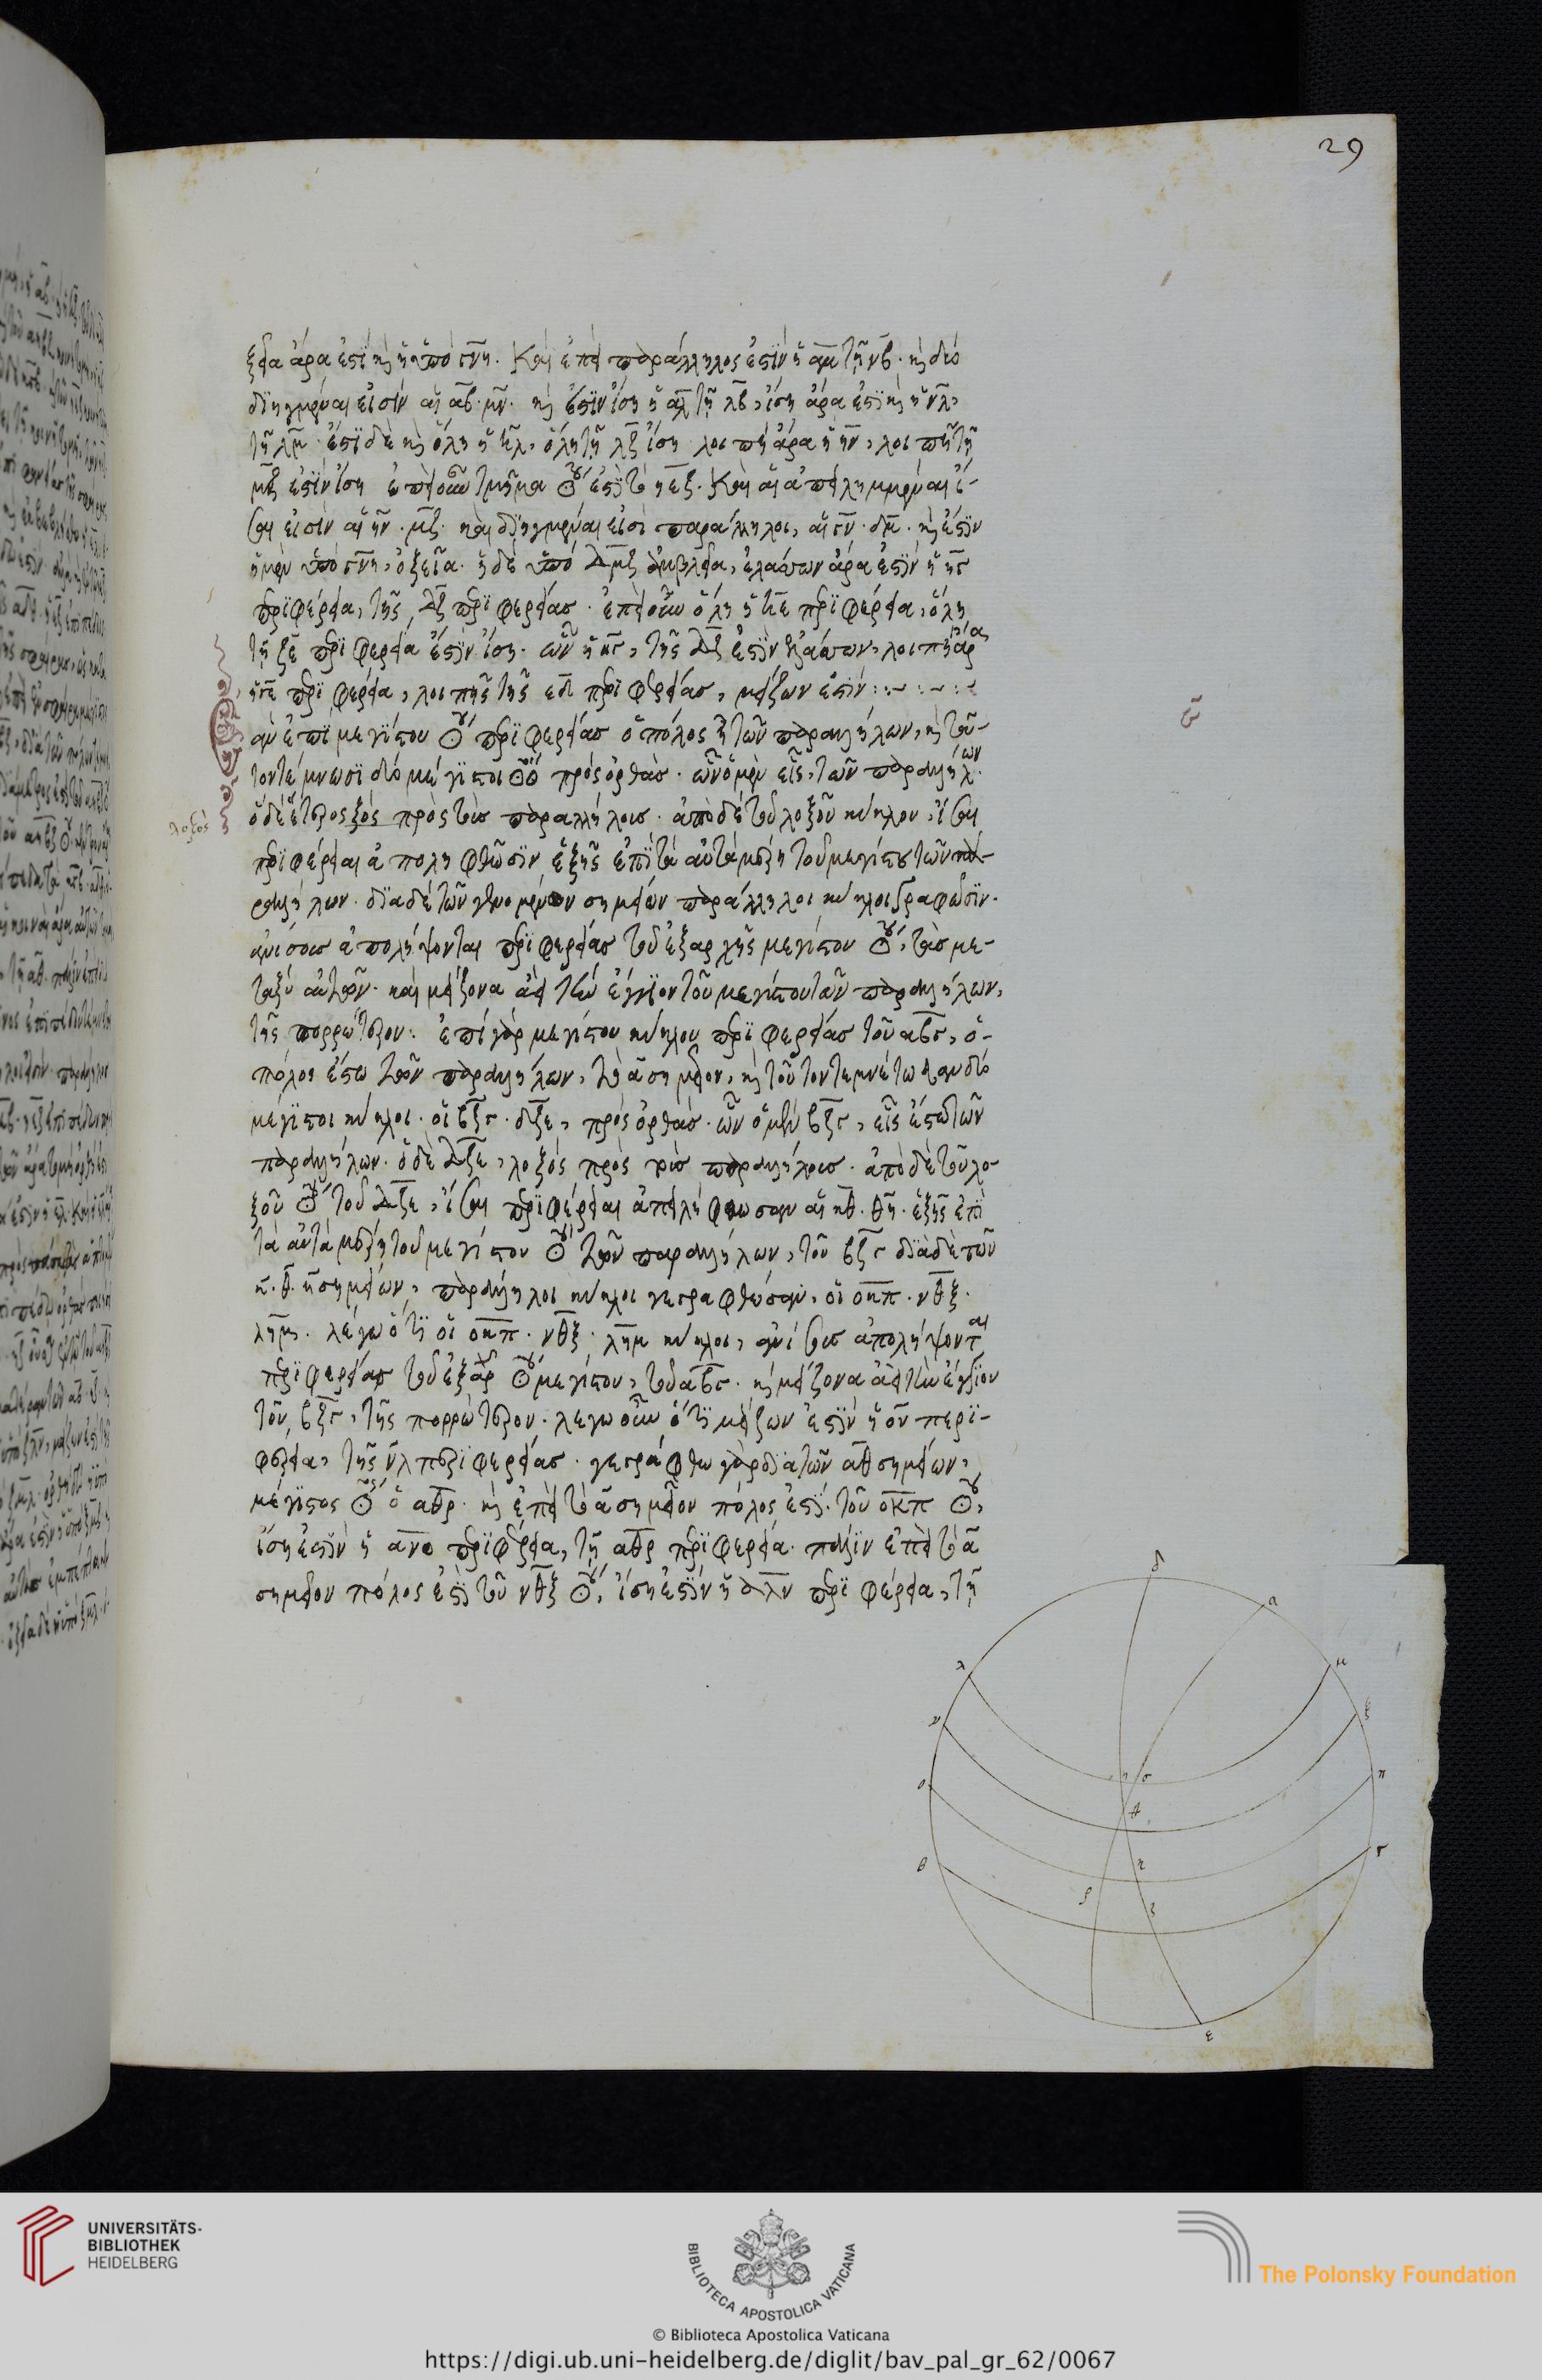 29
ξεῖα ἄρα ἐστὶ καὶ ἡ ὑπὸ γν̅η. Καὶ ἐπεὶ παράλληλος ἐστὶν ἡ αμ̅ τῇ νβ̅. καὶ δύο
διηγμέναι εἰσὶν αἱ αβ̅. μν̅. καὶ ἔστιν ἴση ἡ αλ̅ τῇ λβ̅, ἴση ἄρα ἐστὶ καὶ ἡ νλ̅,
τῇ λμ̅. ἔστι δὲ καὶ ὅλη ἡ ηλ̅, ὅλῃ τῇ λξ̅ ἴση λοιπὴ ἄρα ἡ ην̅, λοιπῇ τῇ
μξ̅ ἐστὶν ἴση ἐπεὶ οὖν τμῆμα ἐστὶ τὸ ηεξ̅. Καὶ αἱ ἀπειλημμέναι ἴ-
σαι εἰσὶν αἱ ην̅. μξ̅. καὶ διηγμέναι εἰσὶ παράλληλοι, αἱ γν̅. δμ̅. καὶ ἔστιν
ἡ μὲν ὑπὸ γν̅η, ὀξεῖα. ἡ δὲ ὑπὸ δμ̅ξ ἀμβλεῖα, ἐλάττων ἄρα ἐστὶν ἡ ηγ̅
περιφέρεια, τῆς δξ̅ περιφερείας. ἐπεὶ οὖν ὅλη ἡ ηε̅ περιφέρεια, ὅλῃ
τῇ ξε̅ περιφερεία ἐστὶν ἴση. ὧν ἡ ηγ̅, τῆς δξ̅ ἐστὶν ἐλάττων, λοιπὴ ἄρα
ἡ γε̅ περιφέρεια, λοιπῆς τῆς εδ̅ περιφερείας, μείζων ἐστίν :~ :~ :
ἐὰν ἐπὶ μεγίστου περιφερείας ὁ πόλος ᾖ τῶν παραλλήλων, καὶ τοῦ-
τον τέμνωσι δύο μέγιστοι πρὸς ὀρθάς. ὧν ὁ μὲν εἷς, τῶν παραλλήλων.
ὁ δὲ ἕτερος λοξὸς πρὸς τοὺς παραλλήλους. ἀπὸ δὲ τοῦ λοξοῦ κύκλου, ἴσαι
λοξός
περιφέρειαι ἀποληφθῶσιν ἑξῆς ἐπὶ τὰ αὐτὰ μέρη τοῦ μεγίστου τῶν πα-
ραλλήλων. διὰ δὲ τῶν γενομένων σημείων παράλληλοι κύκλοι γραφῶσιν.
ἀνίσους ἀπολήψονται περιφερείας τοῦ ἐξ ἀρχῆς μεγίστου, τὰς με-
ταξὺ αὐτῶν. καὶ μείζονα ἀεὶ τὴν ἔγγιον τοῦ μεγίστου τῶν παραλλήλων,
τῆς πορρώτερον: ἐπὶ γὰρ μεγίστου κύκλου περιφερείας τοῦ αβγ̅, ὁ
πόλος ἔστω τῶν παραλλήλων, τὸ α̅ σημεῖον, καὶ τοῦτον τεμνέτωσαν δύο
μέγιστοι κύκλοι. οἱ βξγ̅. δξε̅, πρὸς ὀρθάς. ὧν ὁ μὲν βξγ̅, εἷς ἔστω τῶν
παραλλήλων. ὁ δὲ δξε̅, λοξὸς πρὸς τοὺς παραλλήλους. ἀπὸ δὲ τοῦ λο-
ξοῦ τοῦ δξε̅, ἴσαι περιφέρειαι ἀπειλήφθωσαν αἱ κθ̅. θη̅. ἑξῆς ἐπὶ
τὰ αὐτὰ μέρη τοῦ μεγίστου τῶν παραλλήλων, τοῦ βξγ̅ διὰ δὲ τῶν
κ̅. θ̅. η̅ σημείων, παράλληλοι κύκλοι γεγράφθωσαν, οἱ οκπ̅. νθξ̅.
λημ̅. λέγω ὅτι οἱ οκπ̅. νθξ̅. λημ̅ κύκλοι, ἀνίσους ἀπολήψονται
περιφερείας τοῦ ἐξ ἀρχῆς μεγίστου, τοῦ αβγ̅. καὶ μείζονα ἀεὶ τὴν ἔγγιον
τοῦ, βξγ̅, τῆς πορρώτερον. λέγω οὖν ὅτι μείζων ἐστὶν ἡ ον̅ περι-
φέρεια, τῆς νλ̅ περιφερείας. γεγράφθω γὰρ διὰ τῶν αθ̅ σημείων,
μέγιστος ὁ αθρ̅. καὶ ἐπεὶ τὸ α̅ σημεῖον πόλος ἐστὶ. τοῦ οκπ̅,
ἴση ἐστὶν ἡ ανο̅ περιφέρεια, τῇ αθρ̅ περιφερεία. πάλιν ἐπεὶ τὸ α̅
σημεῖον πόλος ἐστὶ τοῦ νθξ̅, ἴση ἐστὶν ἡ αλν̅ περιφέρεια, τῇ
δ
α
λ
μ
ν
ξ
η σ
ο
π
θ
β
κ
γ
ρ
ξ
ε
UNIVERSITÄTS-
BIBLIOTHEK
HEIDELBERG
BIBLIOTECA APOSTOLICA VATICANA
The Polonsky Foundation
© Biblioteca Apostolica Vaticana
https://digi.ub.uni-heidelberg.de/diglit/bav_pal_gr_62/0067